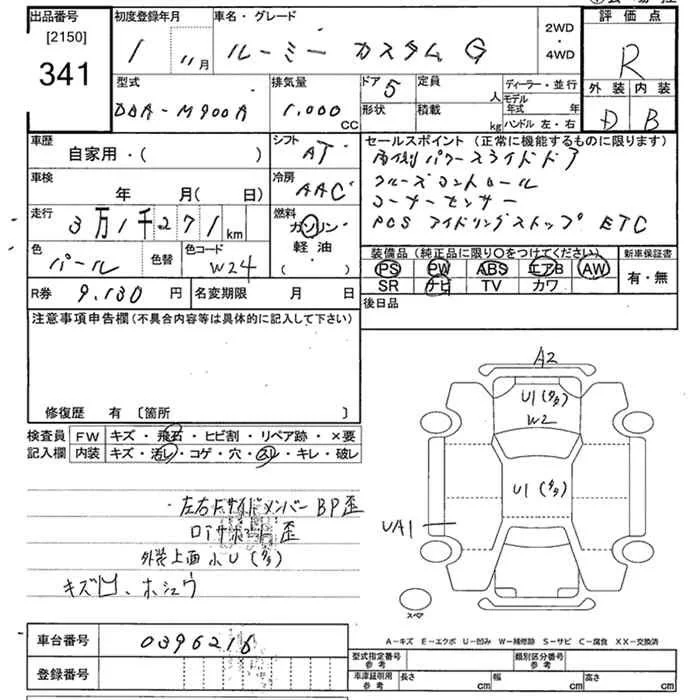 出品番号 初度登録年月 車名・グレード 2WD・4WD 評価点
[2150]
341
1 11月 ルーミー カスタム G R
型式 排気量 ドア 5 定員 人 ディーラー・並行 外装 内装
DBA-M900A 1,000 CC 形状 積載 kg モデル年式 年 ハンドル 左・右 D B
車歴 シフト セールスポイント (正常に機能するものに限ります)
自家用・( ) AT 両側パワースライドドア
車検 冷房 クルーズコントロール
年 月( 日) AAC コーナーセンサー
走行 3万1千271km 燃料 PCS アイドリングストップ ETC
ガソリン
軽油
( )
色 色替 色コード 装備品 (純正品に限り○をつけてください) 新車保証書
パール W24 PS PW ABS エアB AW 有・無
SR ナビ TV カワ
R券 9,130 円 名変期限 月 日 後日品
注意事項申告欄 (不具合内容等は具体的に記入して下さい)
修復歴 有 [箇所 ]
検査員 FW キズ・飛石・ヒビ割・リペア跡・×要
記入欄 内装 キズ・汚レ・コゲ・穴・スレ・キレ・破レ
A2
U1(タタ)
W2
U1(タタ)
UA1
スペア
・左右Fサイドメンバー BP歪
ロアサポート歪
外装上面小U(タタ)
キズ凹、ホシュウ
A-キズ E-エクボ U-凹み W-補修跡 S-サビ C-腐食 XX-交換済
車台番号 0396216
登録番号
型式指定番号 参考 類別区分番号 参考
車庫証明用 参考 長さ cm 幅 cm 高さ cm